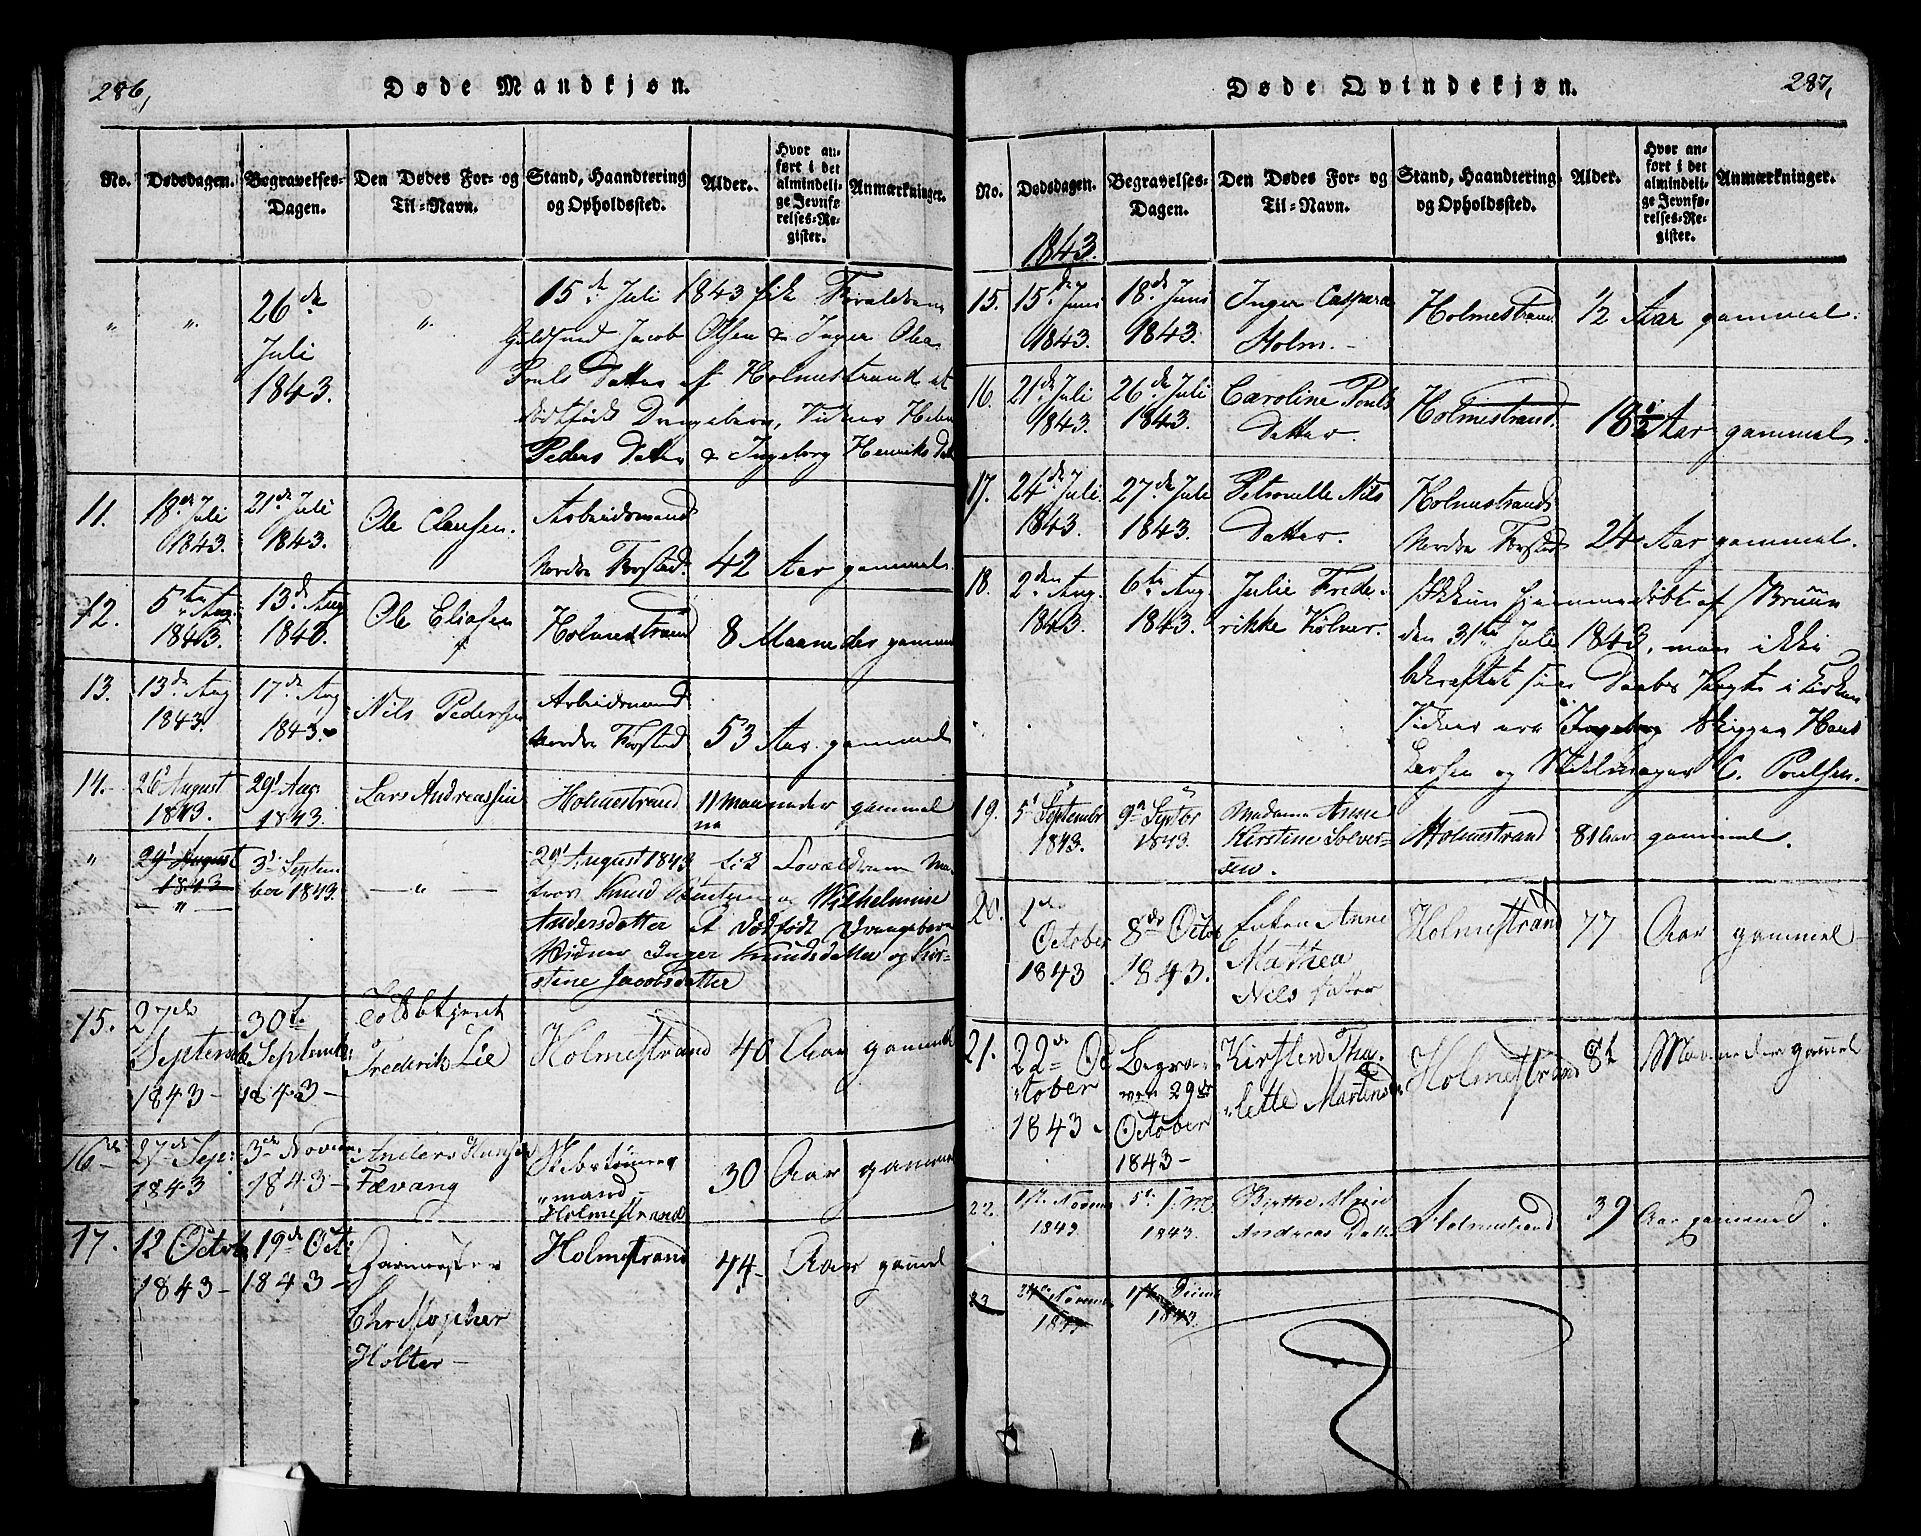 286,
Døde Mandkjøn.
No.
Dødsdagen.
Begravelses-
Dagen.
Den Dødes For- og
Til-Navn.
Stand, Haandtering
og Opholdssted.
Alder.
Hvor an-
ført i det
almindeli-
ge Jevnfø-
relses-Re-
gister.
Anmærkninger.
" "
26de
Juli
1843.
"
15de Juli 1843 fik
Jacob Olsen & Inger Olea
Pouls Datter af Holmestrand et
dødfødt Drengebarn, Vidner Helene
Peders Datter & Ingeborg Henriks Dat
11. 18de Juli
1843.
21de Juli
1843.
Ole Clausen.
Arbeidsmand
Nordre Forstad.
42 Aar gammel.
12. 5te Aug.
1843.
13de Aug
1843.
Ole Eliasen
Holmestrand
8 Maaneder gammel
13. 13de Aug
1843.
17de Aug
1843.
Nils Pedersen
Arbeidsmand
Nordre Forstad
53 Aar gammel
14. 26' August
1843.
29' Aug.
1843.
Lars Andreassen
Holmestrand
11 Maaneder gammel
" 29' August
1843
— " —
3' Septem
ber 1843.
— " —
29' August 1843
Knud og Wilhelmine
Andersdatter et dødfødt Drengebarn
Vidner Inger Knudsdatter og Kir-
stine Jacobsdatter
15. 27de
September
1843 —
30te
September
1843 —
Toldbetjent
Frederik Lie
Holmestrand
40 Aar gammel
16de 27de Sep:
1843
3de Novem:
1843 —
Anders Hansen
Fævang
Skibstømmer
mand
Holmestrand
30 Aar gammel
17. 12 October
1843 —
19de Oct:
1843 —
Farmester
Christopher
Holter —
Holmestrand
44 — Aar gammel
287,
Døde Qvindekjøn.
No.
Dødsdagen.
1843.
Begravelses-
Dagen.
Den Dødes For- og
Til-Navn.
Stand, Haandtering
og Opholdssted.
Alder.
Hvor an-
ført i det
almindeli-
ge Jevnfø-
relses-Re-
gister.
Anmærkninger.
15. 15de Juni
1843.
18de Juni
1843.
Inger Caspara
Holm. —
Holmestrand.
1/2 Aar gammel.
16. 21de Juli
1843.
26de Juli
1843.
Caroline Pouls
Datter.
Holmestrand.
18 1/2 Aar gammel.
17. 24de Juli
1843.
27de Juli
1843.
Petronelle Nils
Datter.
Holmestrands
Nordre Forstad
24 Aar gammel.
18. 2den Aug.
1843.
6te Aug
1843.
Julie Frede-
rikke Kølner.
hjemmedøbt af Bruun
den 31te Juli 1843, men ikke
bekræftet sin Daabs Pagt i Kirken
Vidner ere Ingeborg Skipper Hans
Larsen og C. Poulsen.
19. 5' September
1843.
9de Septbr
1843.
Madame Anne
Kirstine Solver-
sen.
Holmestrand
81 Aar gammel.
20. 1de
October
1843
8de Octob
1843.
Enken Anne
Mathea
Nils Datter
Holmestrand
77 Aar gammel
21. 22de Oc
tober
1843.
Begra-
ven 29de
October
1843 —
Kirsten Tha-
lette Martinsen
Holmestrand
8 1/2 Maaneder gammel
22. Novem
1843.
5'
1843.
Birthe Marie
Andreas Datter
Holmestrand
39 Aar gammel.
23 24de Novem
1843
1843.